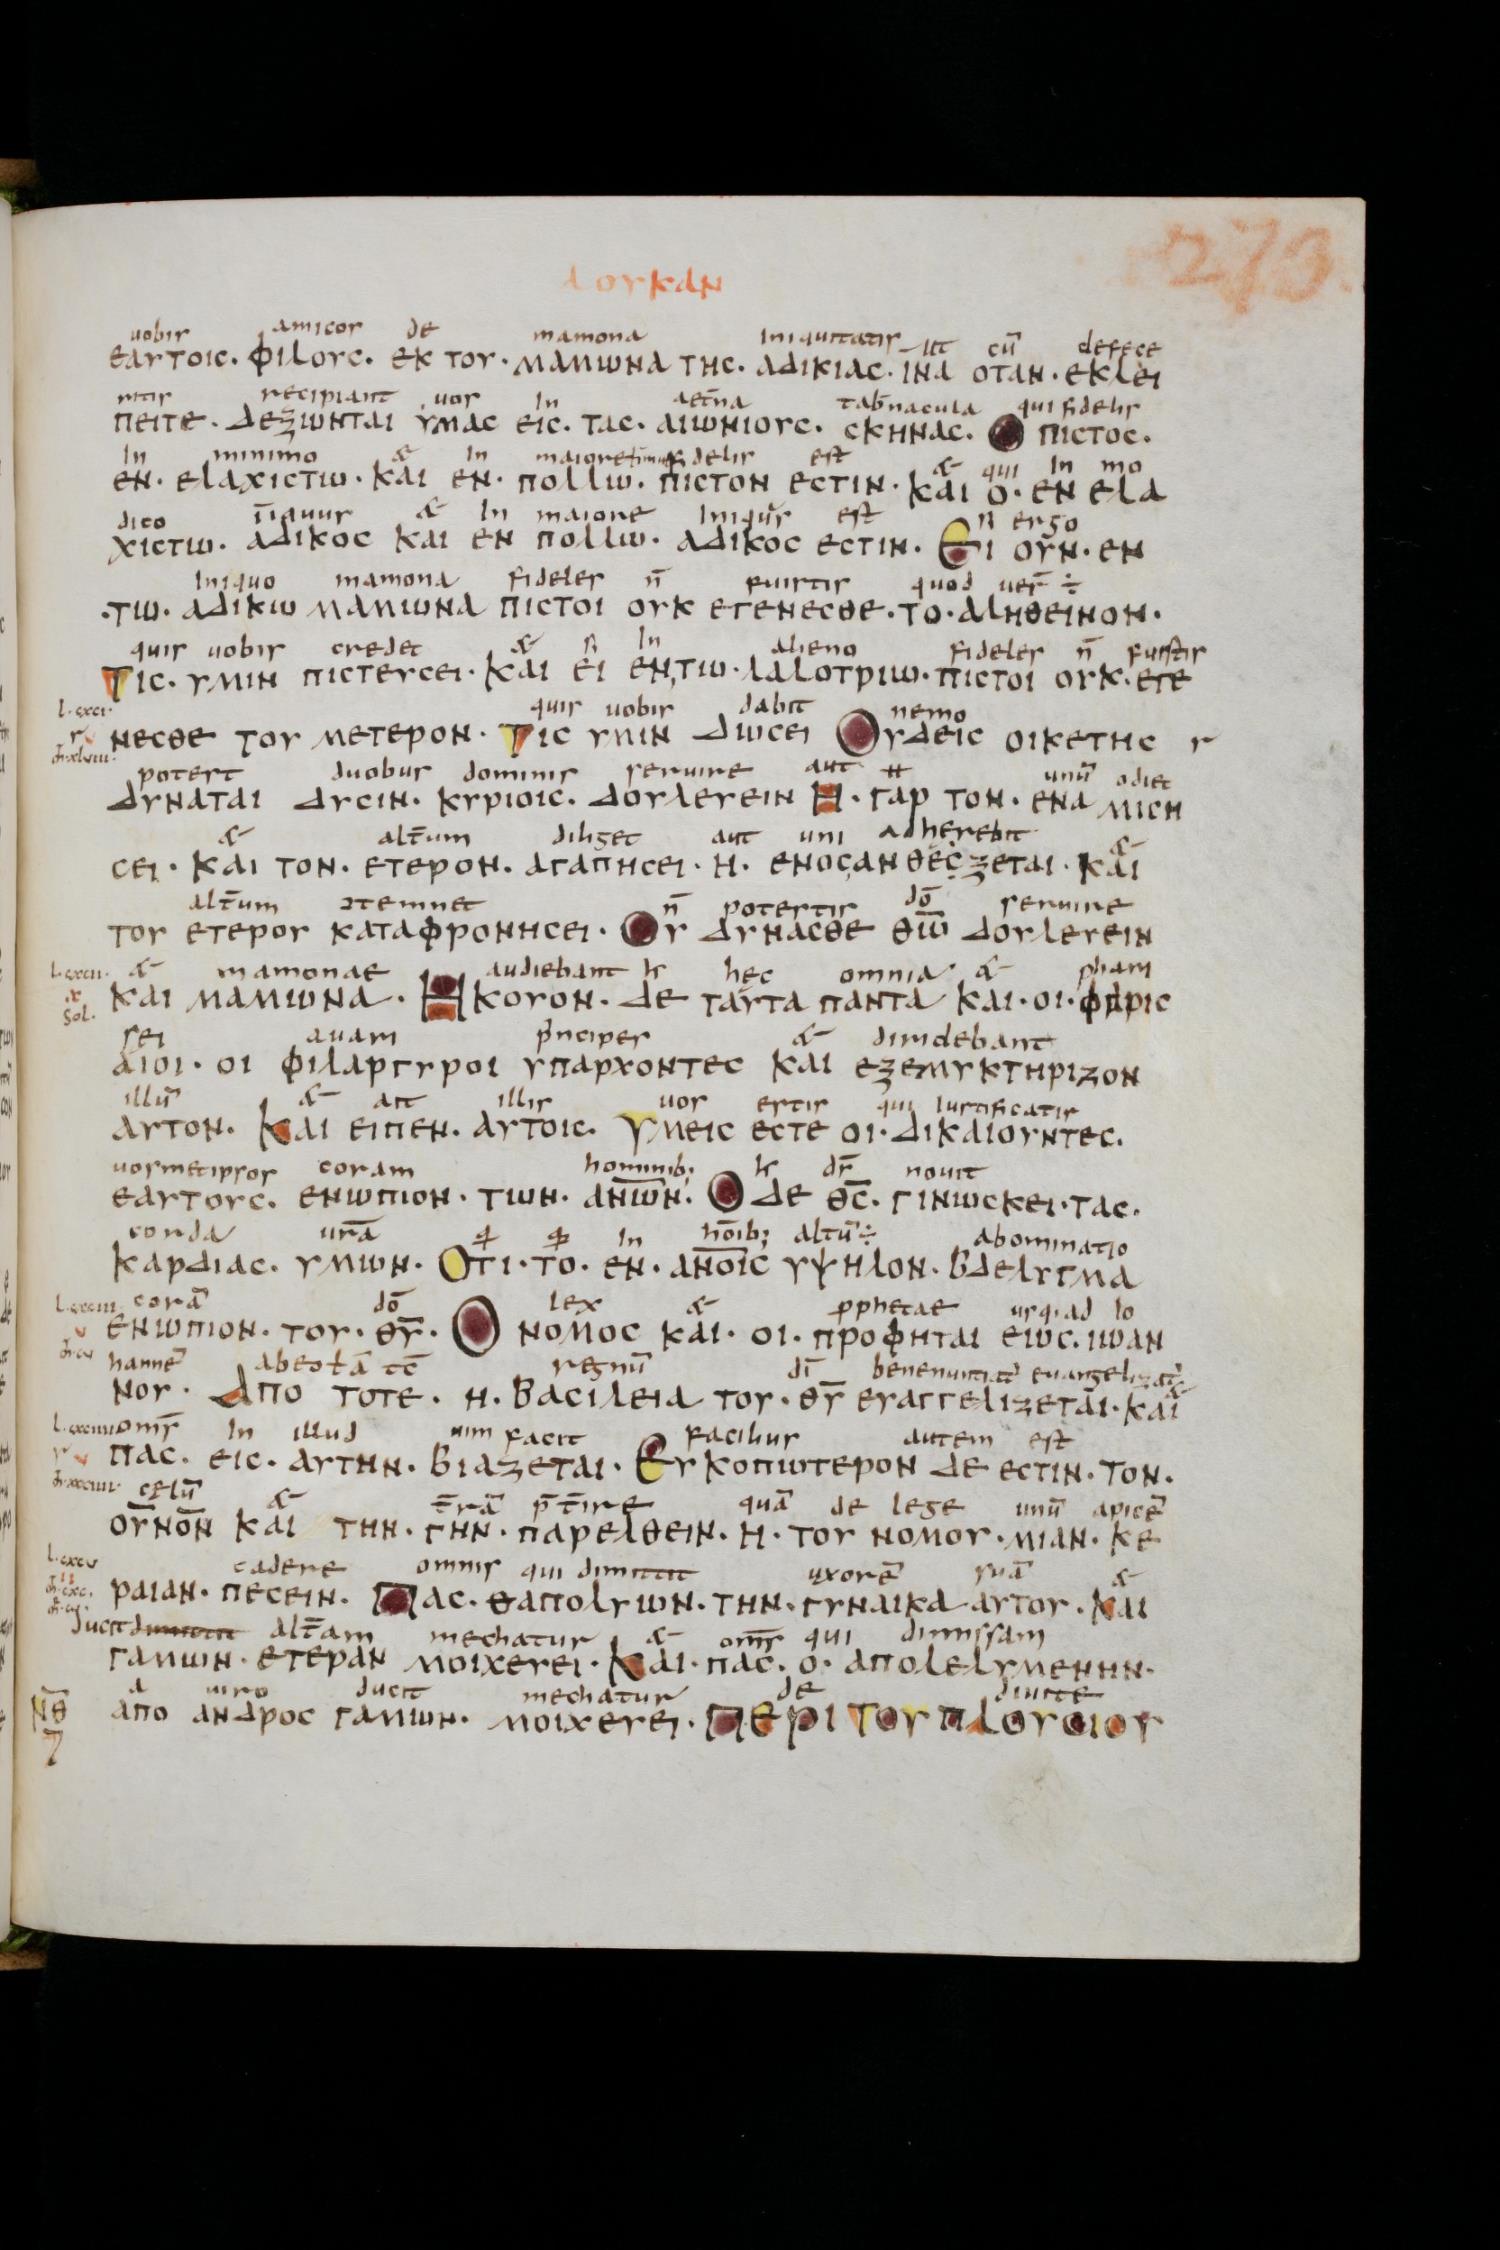 λουκαν
273
uobis amicos de mamona iniquitatis ut cū defece
εαυτοις. φιλους. εκ του. μαμωνα της. αδικιας. ινα οταν. εκλει
ritis recipiant uos in aet̄na tab̄nacula qui fidelis
πειτε. δεξωνται υμας εις. τας. αιωνιους. σκηνας. Ο πιστος.
in minimo & in maiore fidelis est & qui in mo
εν. ελαχιστω. και εν. πολλω. πιστον εστιν. και ο. εν ελα
dico & in maiore iniqus est si ergo
χιστω. αδικος και εν πολλω. αδικος εστιν. Ει ουν. εν
iniquo mamona fideles n̄ fuistis quod uer̄ ÷
.τω. αδικω μαμωνα πιστοι ουκ εγενεσθε. το. αληθεινον.
quis uobis credet & si in alieno fideles n̄ fuistis
Τις. υμιν πιστευσει. και ει εν τω. λαλοτριω. πιστοι ουκ. εγε
quis uobis dabit nemo
νεσθε του μετερον. Τις υμιν δωσει Ουδεις οικετης υ
potest duobus dominis seruire aut unū odiet
δυναται δυσιν. κυριοις. δουλευειν Η. γαρ τον. ενα μιση
& alt̄um diliget aut uni adherebit &
σει. και τον. ετερον. αγαπησει. η. ενος ανθεςζεται. και
alt̄um ↄtemnet n̄ potestis dō seruire
του ετερου καταφρονησει. Ου δυνασθε θω̄ δουλευειν
& mamonae audiebant hec omnia & phari
και μαμωνα. Ηκουον. δε ταυτα παντα και. οι. φαρις
sei auari diridebant
αιοι. οι φιλαργυροι υπαρχοντες και εξεμυκτηριζον
illū & ait illis uos estis qui iustificatis
αυτον. Και ειπεν. αυτοις. Υμεις εστε οι. δικαιουντες.
uosmetipsos coram hominib; ds̄ nouit
εαυτους. ενωπιον. των. ανων̄. Ο δε θς̄. γινωσκει. τας.
corda ur̄a in hōib; altū÷ abominatio
καρδιας. υμων. Οτι. το. εν. ανοις̄ υψηλον. βδελυγμα
L. cxciii. corā dō lex & pphetae usq; ad io
ενωπιον. του. θῡ. Ο νομος και. οι. προφηται εως. ιωαν
hannē regnū dī euangelizat̄ &
νου. Απο τοτε. η. βασιλεια του. θῡ ευαγγελιζεται. και
L. cxciiii oms̄ in illud uim facit facilius autem est
πας. εις. αυτην. βιαζεται. Ευκοπωτερον δε εστιν. τον.
celū & t̄rā p̄t̄ire quā de lege unū apicē
ουνον̄ και την. γην. παρελθειν. η. του νομου. μιαν. κε
L. cxcv cadere omnis qui dimittit uxorē suā &
ραιαν. πεσειν. Πας. θαπολυων. την. γυναικα αυτου. και
ducit dimittit alt̄am mechatur & oms̄ qui dimissam
γαμων. ετεραν μοιχευει. Και. πας. ο. απολελυμενην.
a uiro ducit mechatur de diuite
ΝΘ απο ανδρος γαμων. μοιχευει. Περι του πλουσιου